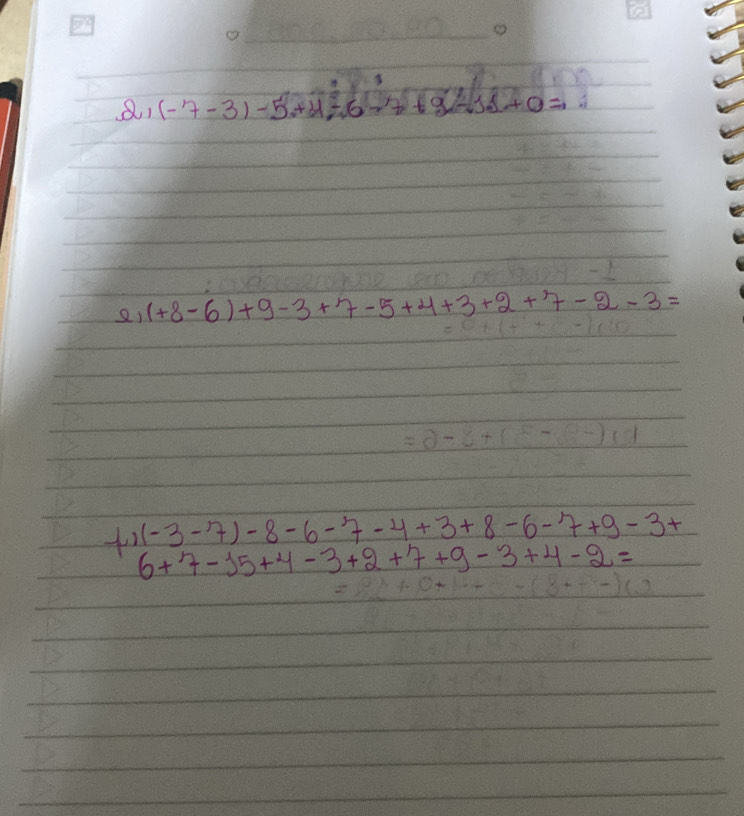 d) (-7-3)-5+4-6-7+9-11+0=
e) (+8-6)+9-3+7-5+4+3+2+7-2-3=
f) (-3-7)-8-6-7-4+3+8-6-7+9-3+
6+7-15+4-3+2+7+9-3+4-2=